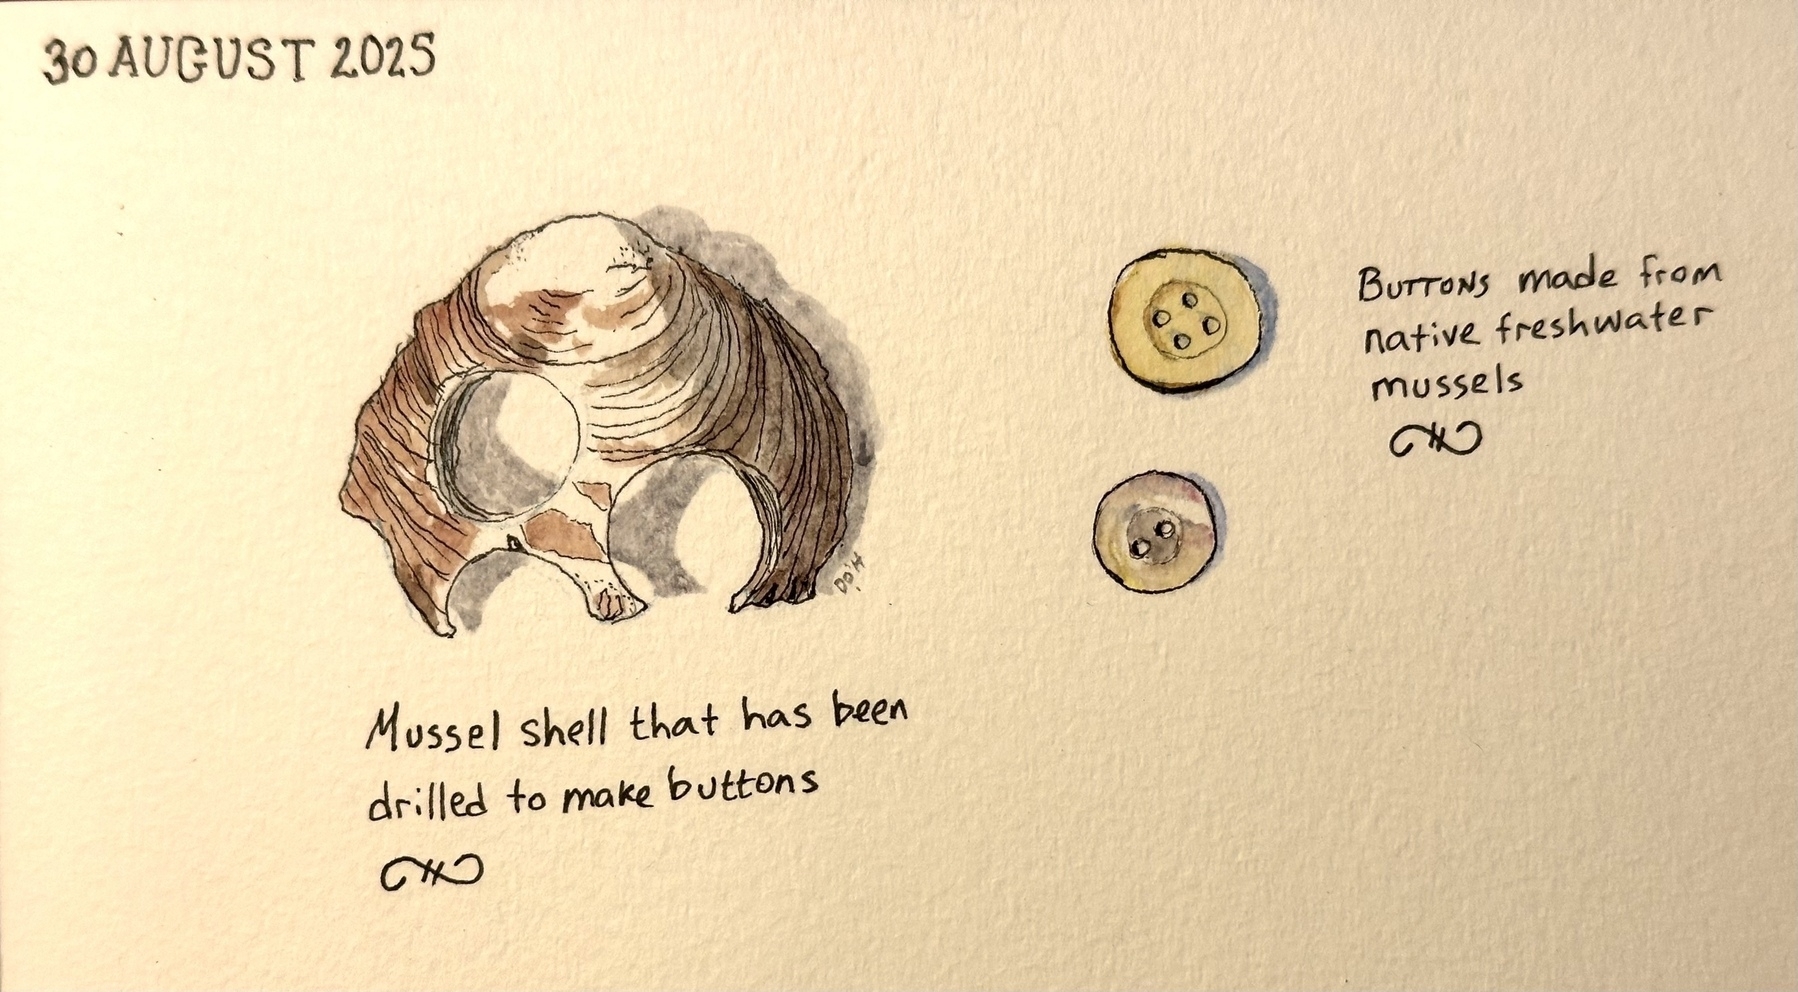 30 AUGUST 2025
Buttons made from
native freshwater
mussels
D.O'H
Mussel shell that has been
drilled to make buttons